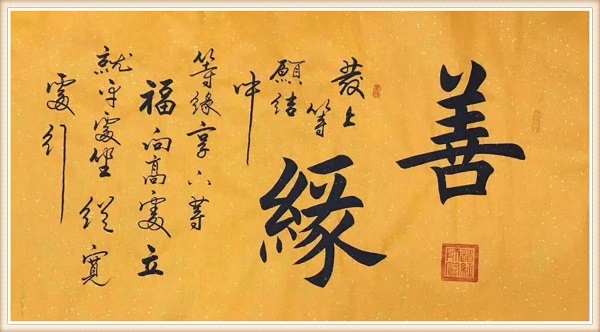 善
緣
發上等
願結
中
等緣享下等
福向高處立
就平處坐從寬
處行